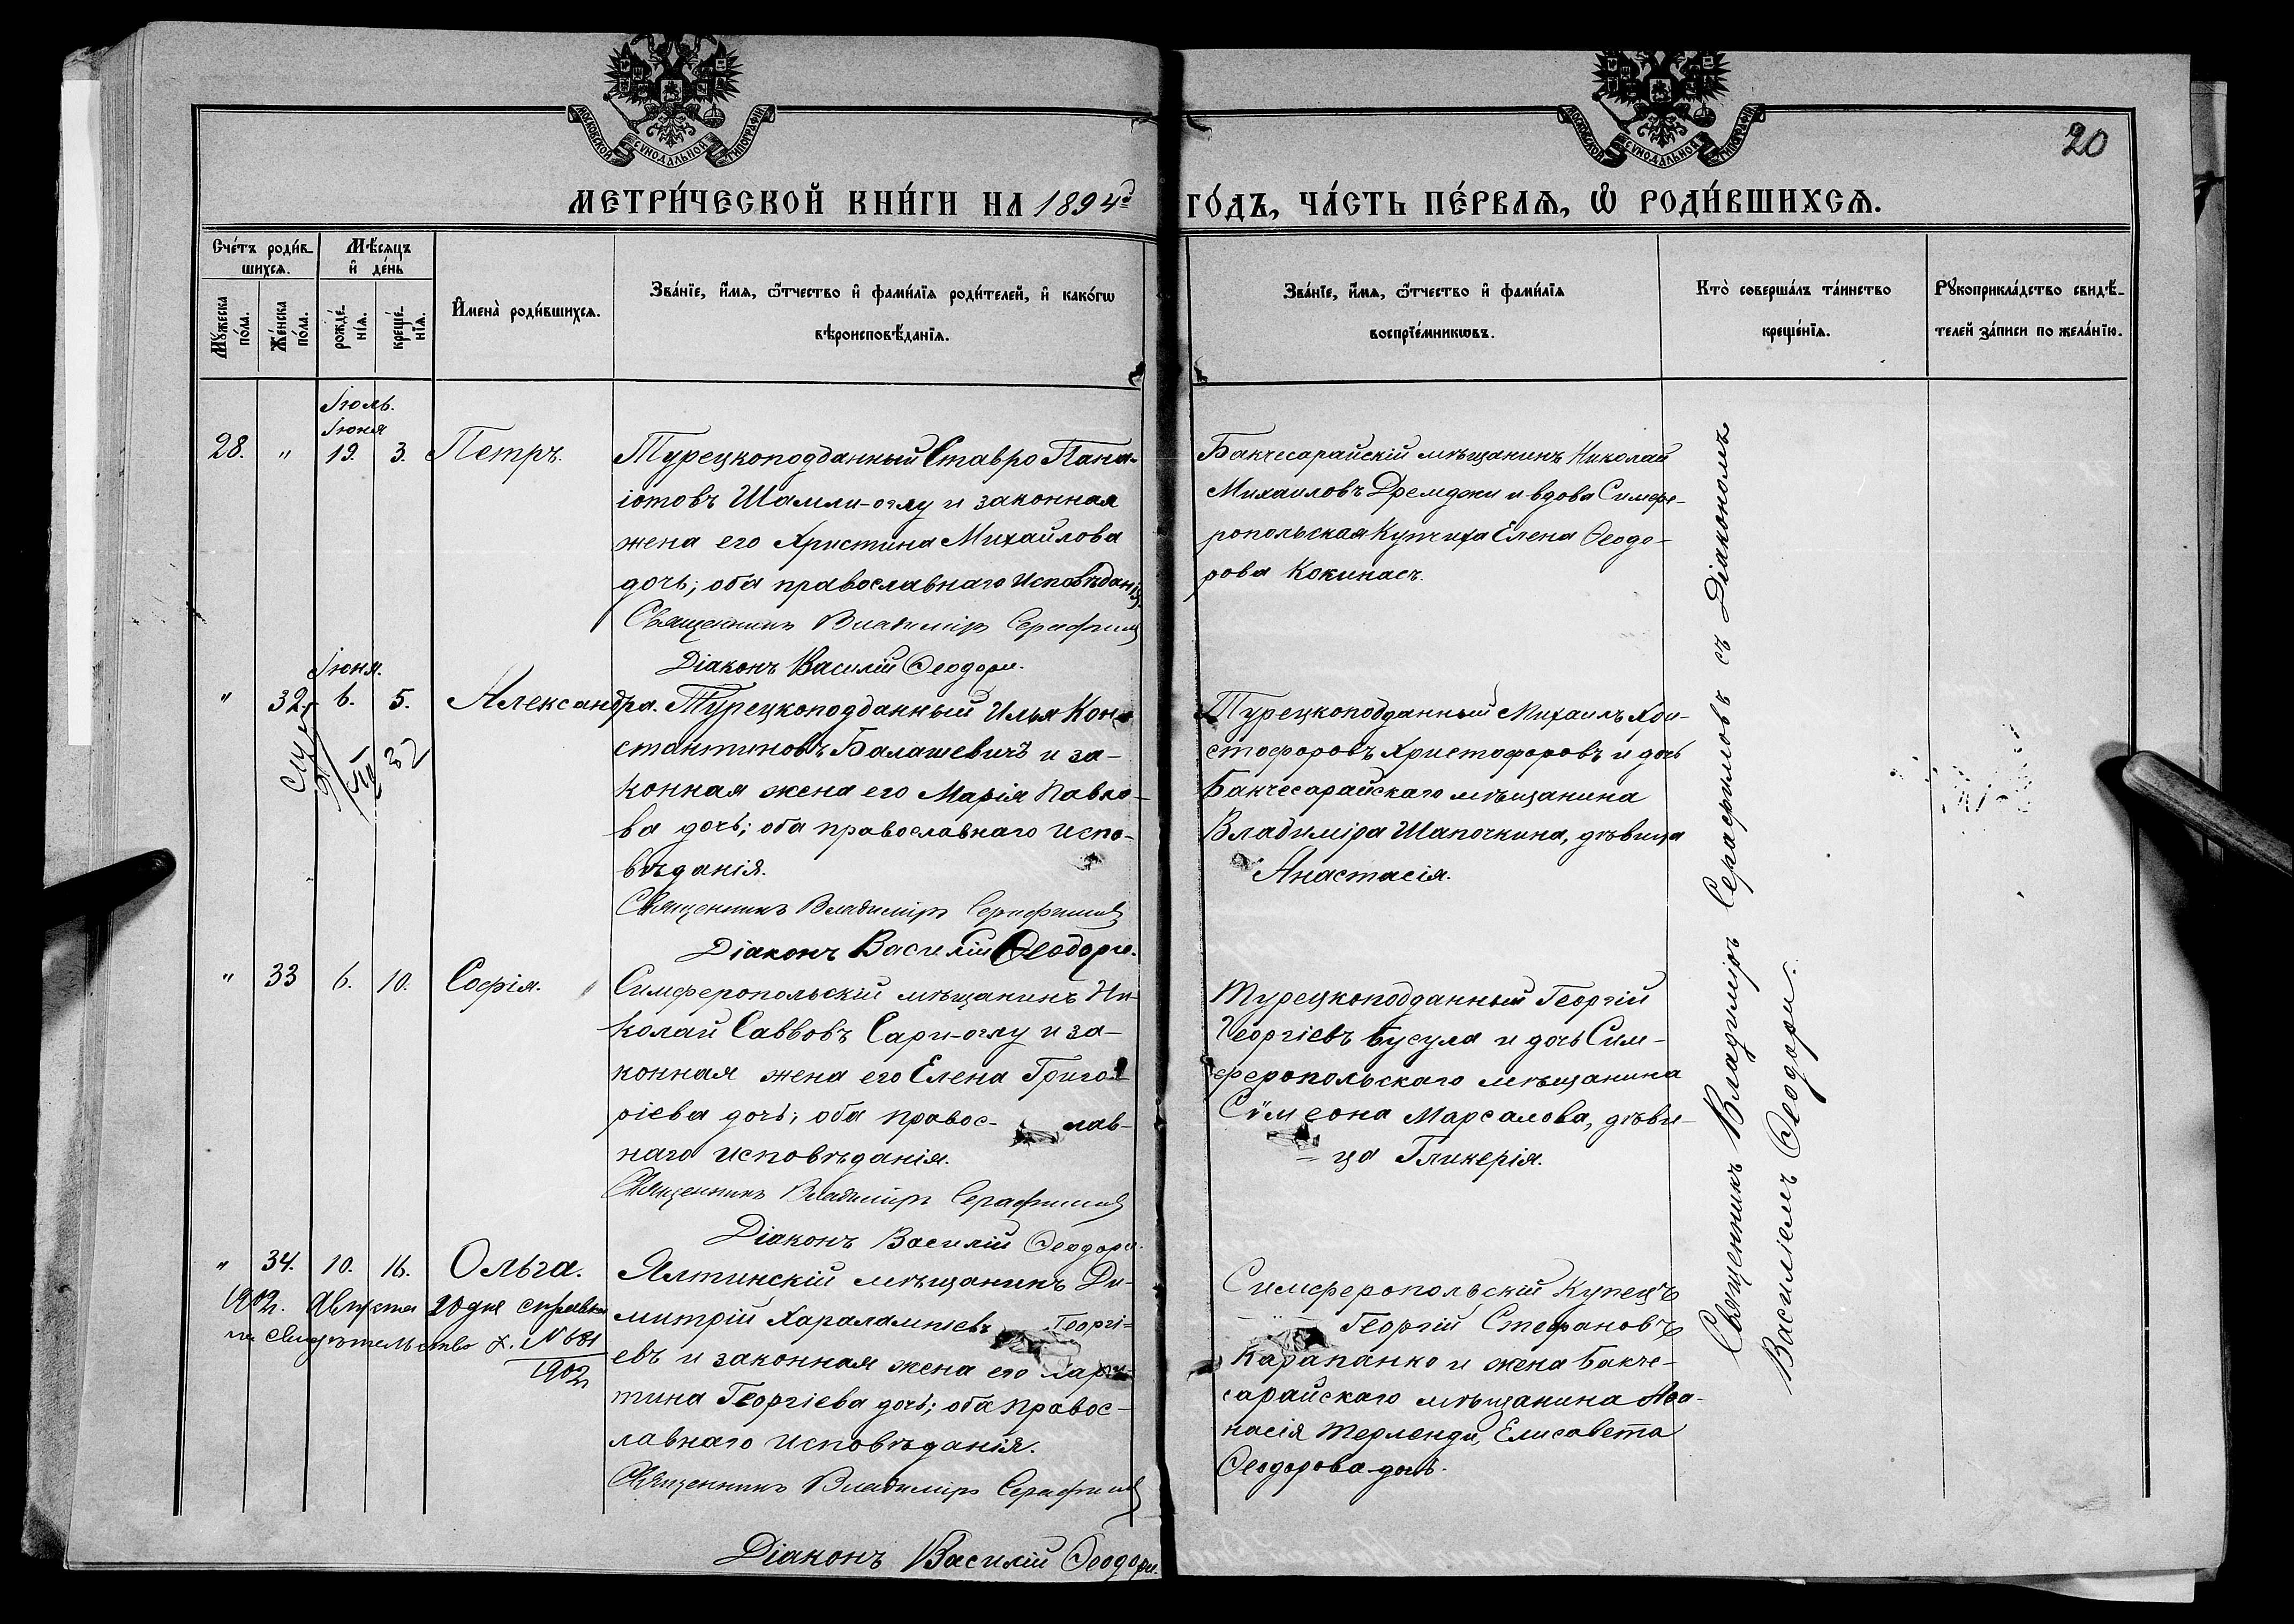 МОСКОВСКОЙ СУНОДАЛЬНОЙ ТИПОГРАФІИ
МОСКОВСКОЙ СУНОДАЛЬНОЙ ТИПОГРАФІИ
20
МЕТРИ́ЧЕСКОЙ КНИ́ГИ НА 1894й ГО́ДЪ, ЧА́СТЬ ПЕ́РВАЯ, Ѽ РОДИ́ВШИХСЯ.
Сче́тъ роди́в-
шихся.
Му́жеска по́ла.
Же́нска по́ла.
Мѣ́сяцъ
и҆ де́нь
рожде́-
нія.
креще́-
нія.
И҆мена̀ роди́вшихся.
Зва́нїе, и҆́мя, ѻ҆́тчество и҆ фами́лїя роди́телей, и҆ како́гѡ
вѣроисповѣ́данїя.
Зва́нїе, и҆́мя, ѻ҆́тчество и҆ фами́лїя
воспрїе́мникѡвъ.
Кто̀ соверша́лъ та́инство
креще́нїя.
Рꙋкоприкла́дство свидѣ́-
телей за́писи по жела́нїю.
Іюль.
Іюня
28. " 19. 3. Петръ.
Турецкоподданный Ставро Пана-
іотовъ Шамли-оглу и законная
жена его Христина Михайлова
дочь; оба православнаго исповѣданія.
Священникъ Владиміръ Серафимовъ
Діаконъ Василій Ѳеодори.
Бакчесарайскій мѣщанинъ Николай
Михаиловъ Дремджи и вдова Симфе-
ропольская Купчиха Елена Ѳеодо-
рова Кокинасъ.
Іюня.
" 32. 6. 5. Александра.
32
Турецкоподданный Илья Кон-
стантиновъ Балашевичъ и за-
конная жена его Марія Павло-
ва дочь; оба православнаго испо-
вѣданія.
Священникъ Владиміръ Серафимовъ
Діаконъ Василій Ѳеодори.
Турецкоподданный Михаилъ Хри-
стофоровъ Христофоровъ и дочь
Бакчесарайскаго мѣщанина
Владиміра Шапочкина, дѣвица
Анастасія.
" 33 6. 10. Софія.
Симферопольскій мѣщанинъ Ни-
колай Саввовъ Сари-оглу и за-
конная жена его Елена Григо-
ріева дочь; оба правос- лав-
наго исповѣданія.
Священникъ Владиміръ Серафимовъ
Діаконъ Василій Ѳеодори.
Турецкоподданный Георгій
Георгіевъ Бусула и дочь Сим-
феропольскаго мѣщанина
Сѵмеона Марсалова, дѣви-
ца Гликерія.
" 34. 10. 16. Ольга.
1902г. Августа 20 дня справка
на свидѣтельство №681
1902
Ялтинскій мѣщанинъ Ди-
митрій Харалампіевъ Георгі-
евъ и законная жена его Хари-
тина Георгіева дочь; оба правос-
лавнаго исповѣданія.
Священникъ Владиміръ Серафимовъ
Діаконъ Василій Ѳеодори.
Симферопольскій Купецъ
Георгій Стефановъ
Карапанко и жена Бакче-
сарайскаго мѣщанина Аѳа-
насія Терленди, Елисавета
Ѳеодорова дочь.
Священникъ Владиміръ Серафимовъ съ Діакономъ
Василіемъ Ѳеодори.